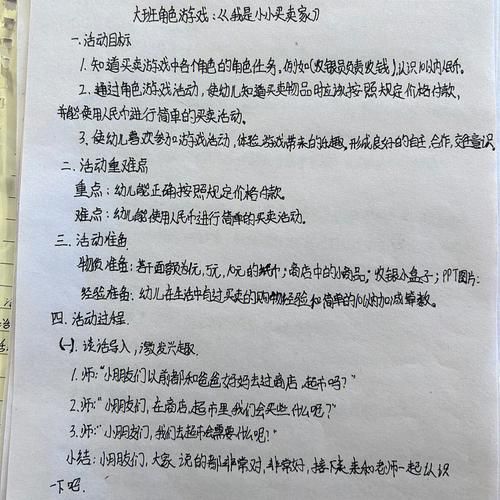 大班角色游戏:《我是小小买卖家》
一.活动目标
1.知道买卖游戏中各个角色的角色任务,例如(收银员负责收钱)认识10以内人民币。
2.通过角色游戏活动,使幼儿知道买卖物品时应该按照规定价格付款,
并能使用人民币进行简单的买卖活动。
3.使幼儿喜欢参加游戏活动,体验游戏带来的乐趣.形成良好的自主,合作,交往意识
二.活动重难点
重点:幼儿能正确按照规定价格付款.
难点:幼儿能使用人民币进行简单的买卖活动.
三.活动准备
物质准备:若干面额为1元,5元,10元的纸币;商店中的小商品;收银小盒子;PPT图片:
经验准备:幼儿在生活中有过买卖的购物经验和简单的10以内加减算数。
四.活动过程
(一).谈话导入,激发兴趣.
1.师:"小朋友们以前都和爸爸妈妈去过商店,超市吗?"
2.师:"小朋友们,在商店,超市里我们会买些什么呢?"
3.师:"小朋友们,我们去超市会需要什么呢?"
小结:小朋友们,大家说的都非常对,非常好,接下来来和老师一起认识
一下吧.